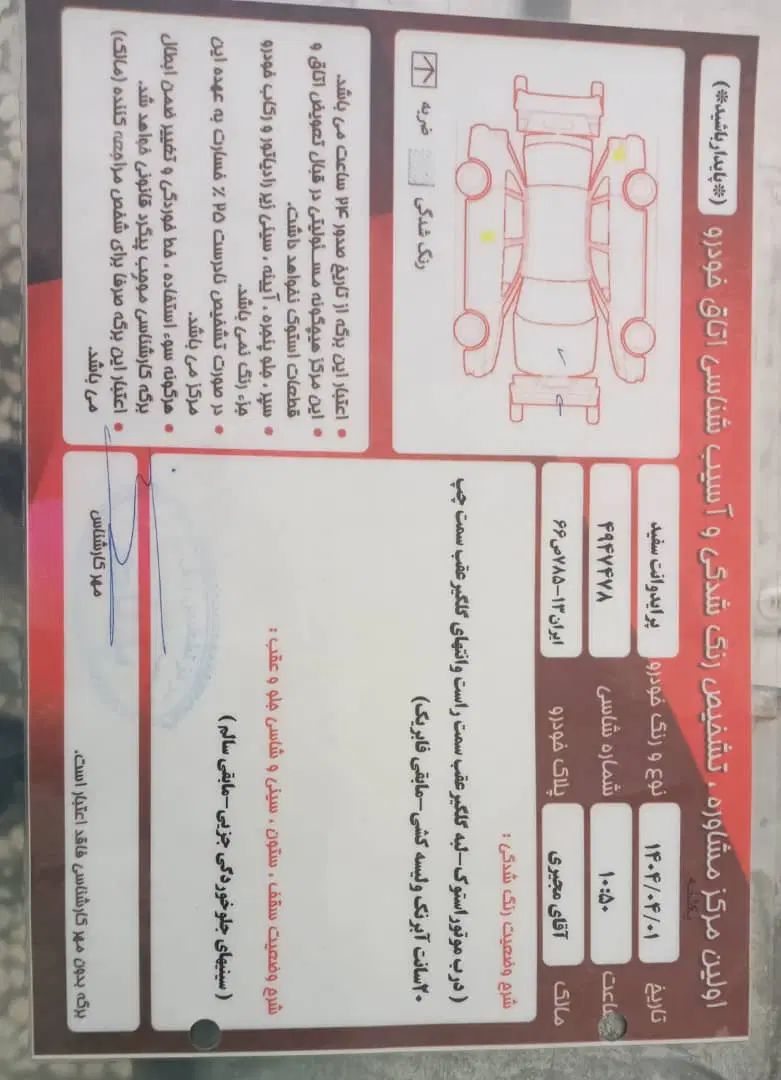 (*پایدار باشید*)
اولین مرکز مشاوره ، تشخیص رنگ شدگی و آسیب شناسی اتاق خودرو
تاریخ ۱۴۰۴/۰۴/۰۱
نوع و رنگ خودرو پرایدوانت سفید
ساعت ۱۰:۵۰
شماره شاسی ۴۹۴۷۴۷۸
مالک آقای مجیری
پلاک خودرو ایران۱۳-۷۸۵ص۶۶
ضربه
رنگ شدگی
شرح وضعیت رنگ شدگی :
(درب موتور استوک-لبه گلگیر عقب سمت راست و انتهای گلگیر عقب سمت چپ
۲۰سانت آبرنگ و لیسه کشی-مابقی فابریک)
شرح وضعیت سقف ، ستون ، سینی و شاسی جلو و عقب :
(سینیهای جلو خوردگی جزیی-مابقی سالم)
• اعتبار این برگه از تاریخ صدور ۲۴ ساعت می باشد.
• این مرکز هیچگونه مسئولیتی در قبال تعویض اتاق و
قطعات استوک نخواهد داشت.
• سپر ، جلو پنجره ، آیینه ، سینی زیر رادیاتور و رکاب خودرو
جزء رنگ نمی باشد.
• در صورت تشخیص نادرست ۲۵ ٪ خسارت به عهده این
مرکز می باشد.
• هرگونه سوء استفاده ، خط خوردگی و تغییر ضمن ابطال
برگه کارشناسی موجب پیگرد قانونی خواهد شد.
• اعتبار این برگه صرفا برای شخص مراجعه کننده (مالک)
می باشد.
مهر کارشناس
برگه بدون مهر کارشناسی فاقد اعتبار است.